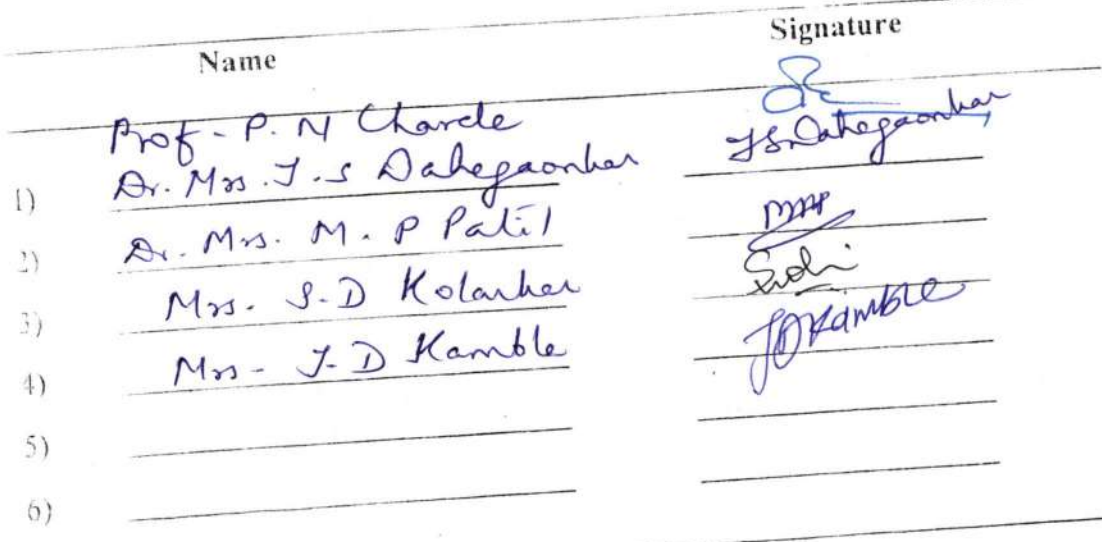 Name Signature
Prof - P. N Charde
1) Dr. Mrs. J. S Dahegaonkar JSDahegaonkar
2) Dr. Mrs. M. P Patil
3) Mrs. S. D Kolarkar
4) Mrs - J- D Kamble JDKamble
5)
6)